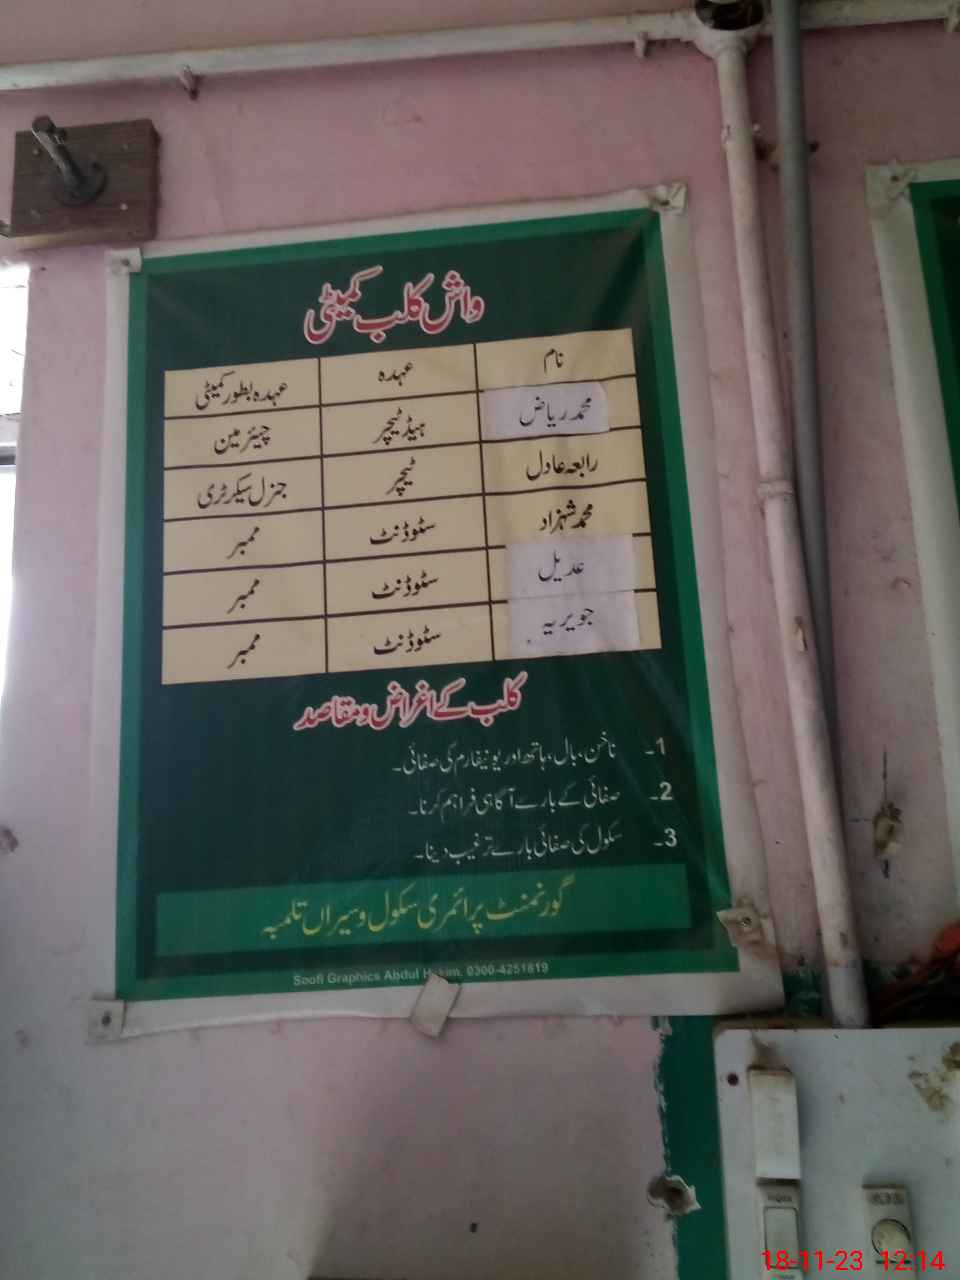 واش کلب کمیٹی
نام عہدہ عہدہ بطور کمیٹی
محمد ریاض ہیڈ ٹیچر چیئرمین
رابعہ عادل ٹیچر جنرل سیکرٹری
محمد شہزاد سٹوڈنٹ ممبر
عدیل سٹوڈنٹ ممبر
جویریہ سٹوڈنٹ ممبر
کلب کے اغراض و مقاصد
1۔ ناخن، بال، ہاتھ اور یونیفارم کی صفائی۔
2۔ صفائی کے بارے آگاہی فراہم کرنا۔
3۔ سکول کی صفائی بارے ترغیب دینا۔
گورنمنٹ پرائمری سکول وسیراں تلمبہ
Soofi Graphics Abdul Hakim. 0300-4251819
18-11-23 12:14